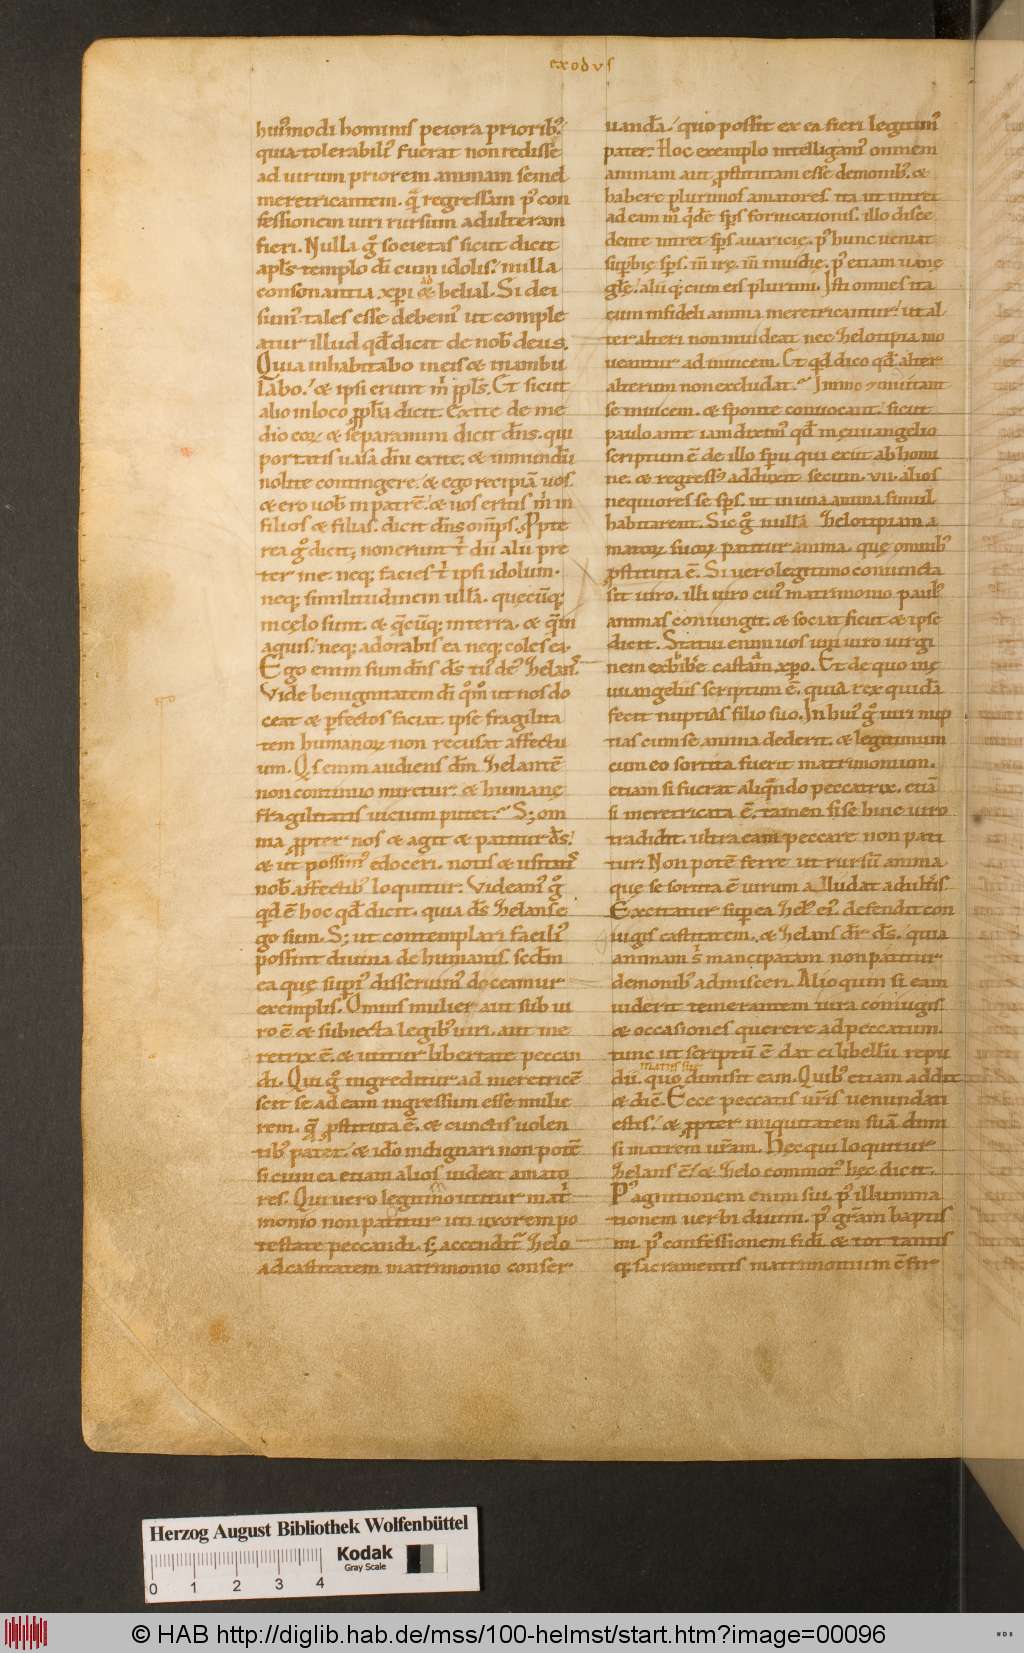 exodus
hui᾽modi hominis peiora priorib᾽.
quia tolerabili᾽ fuerat non redisse
ad uirum priorem animam semel
meretricantem. quā regressam p᾽ con
fessionem uiri rursum adulteram
fieri. Nulla g᾽ societas sicut dicit
apl̄s templo dī cum idolis. nulla
consonantia xpi ad belial. Si dei
sum᾽ tales esse debem᾽ ut comple
atur illud qd̄ dicit de nob̄ deus.
Quia inhabitabo in eis & inambu
labo. & ipsi erunt m̄ ppl̄s. Et sicut
alio in loco ꝓpha dicit. Exite de me
dio eoꝝ & separamini dicit dn̄s. qui
portatis uasa dn̄i exite. & inmundū
nolite contingere. & ego recipiā uos.
& ero uob̄ in patrē. & uos eritis m̄ in
filios & filias. dicit dn̄s om̄ps. Ꝓpte
rea g᾽ dicit; non erunt t̄ dii alii pre
ter me. neq; facies t̄ ipsi idolum.
neq; similitudinem ullā. quęcūq;
in cęlo sunt. & quęcūq; in terra. & quę in
aquis. neq; adorabis ea neq; coles ea.
Ego enim sum dn̄s ds̄ tu᾽ ds̄ zelans.
Vide benignitatem dī qm̄o ut nos do
ceat & ꝑfectos faciat. ipse fragilita
tem humanoꝝ non recusat affectu
um. Qs enim audiens dm̄ zelantē
non continuo miretur. & humanę
fragilitatis uicium putet? S; om
nia ꝓpter nos & agit & patitur ds̄.
& ut possim᾽ edoceri. notis & usitatis
nob̄ affectib᾽ loquitur. Videam᾽ g᾽
qd̄ ē hoc qd̄ dicit. quia ds̄ zelans e
go sum. S; ut contemplari facili᾽
possint diuina de humanis. sedm
ea quę supi᾽ disseruim᾽ doceamur
exemplis. Omnis mulier aut sub ui
ro ē & subiecta legib᾽ uiri. aut me
retrix ē. & utitur libertate peccan
di. Qui g᾽ ingreditur ad meretricē
scit se ad eam ingressum esse mulie
rem. quę ꝓstituta ē. & cunctis uolen
tib᾽ patet. & idō indignari non potē
si cum ea etiam alios uideat amato
res. Qui uero legitimo utitur mat
monio non patitur uti uxorem po
testate peccandi. s; accendit᾽ zelo
ad castitatem matrimonio conser
uandā. quo possit ex ea fieri legitim᾽
pater. Hoc exemplo intelligam᾽ omnem
animam aut ꝓstitutam esse demonib᾽. &
habere plurimos amatores. ita ut intret
ad eam m̄ qde sps̄ fornicationis. illo disce
dente intret sps̄ auaricię. p᾽ hunc ueniat
supbię sps̄. in irę. in inuidię. p᾽ etiam uanę
glę. alii q; cum eis plurimi. Isti omnes ita
cum infideli anima meretricantur. ut al
ter alteri non inuideat nec zelotipia mo
ueantur ad inuicem. Et qd̄ dico qd̄ alter
alterum non excludat? Immo & inuitant
se inuicem. & sponte conuocant. sicut
paulo ante iam dixim᾽ qd̄ in ęuuangelio
scriptum ē de illo spu qui exiit ab homi
ne. & regress᾽ adduxit secum .vii. alios
nequiores se sps̄. ut in una anima simul
habitarent. Sic g᾽ nullā zelotipiam a
matoꝝ suoꝝ patitur anima. quę omnib᾽
ꝓstituta ē. Si uero legitimo coniuncta
sit uiro. illi uiro cui᾽ matrimonio paul᾽
animas coniungit. & sociat sicut & ipse
dicit. Statui enim uos uni uiro uirgi
nem exhibere castam xpo. Et de quo in ę
uuangeliis scriptum ē. quia rex quidā
fecit nuptias filio suo. In hui᾽ g᾽ uiri nup
tias cum se anima dederit. & legitimum
cum eo sortita fuerit matrimonium.
etiam si fuerat aliquando peccatrix. etiā
si meretricata ē. tamen si se huic uiro
tradidit. ultra eam peccare non pati
tur. Non potē ferre ut rursū anima
quę se sortita ē uirum alludat adulteris.
Excitatur sup ea zel᾽ ei᾽. defendit con
iugis castitatem. & zelans dr̄ ds̄. quia
animam s̄ mancipatam non patitur
demonib᾽ admisceri. Alioquin si eam
uiderit temerantem iura coniugii
& occasiones querere ad peccatum.
tunc ut scriptū ē dat ei libellū repu
matris sue
dii. quo dimisit eam. Quib᾽ etiam addit
& diē. Ecce peccatis uris uenundati
estis. & ꝓpter iniquitatem suā dimi
si matrem uram. Hec qui loquitur
zelans ē. & zelo commot᾽ hęc dicit.
P᾽ agnitionem enim sui. p᾽ illumina
tionem uerbi diuini. p᾽ gratiam baptis
mi. p᾽ confessionem fidi. & tot tantis
q; sacramentis matrimonium cōfir
Herzog August Bibliothek Wolfenbüttel
Kodak
Gray Scale
0 1 2 3 4
© HAB http://diglib.hab.de/mss/100-helmst/start.htm?image=00096